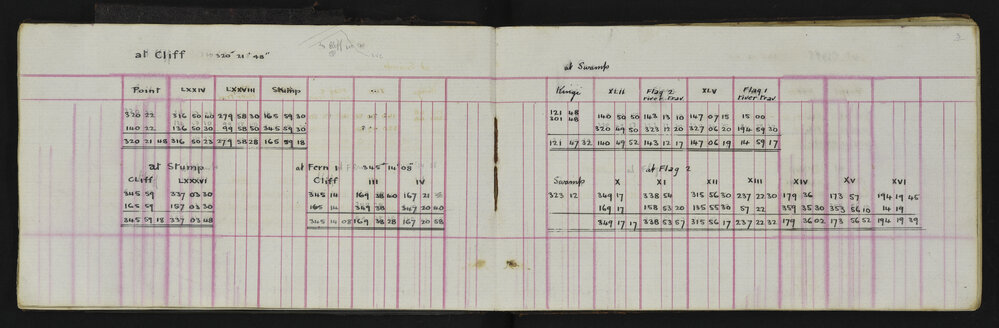 at Cliff 320° 21' 48"
Point LXXIV LXXVIII Stump
320 22 316 50 40 279 58 30 165 59 30
140 22 136 50 30 99 58 50 345 59 30
320 21 48 316 50 23 279 58 28 165 59 18
at Stump
Cliff LXXXVI
345 59 337 03 30
165 59 157 03 30
345 59 18 337 03 48
at Fern 1 345° 14' 08"
Cliff III IV
345 14 169 38 40 167 21
165 14 349 38 347 20 40
345 14 08 169 38 28 167 20 58
3
at Swamp
Kingi XLII Flag 2 river trav XLV Flag 1 river trav
121 48
301 48 140 50 50 143 13 10 147 07 15 15 00
320 49 50 323 12 20 327 06 20 194 59 30
121 47 32 140 49 52 143 12 17 147 06 19 14 59 17
at Flag 2
Swamp X XI XII XIII XIV XV XVI
323 12 349 17 338 54 315 56 30 237 22 30 179 36 173 57 194 19 45
169 17 158 53 20 135 55 30 57 22 359 35 30 353 56 10 14 19
349 17 17 338 53 57 315 56 17 237 22 32 179 36 02 173 56 52 194 19 39